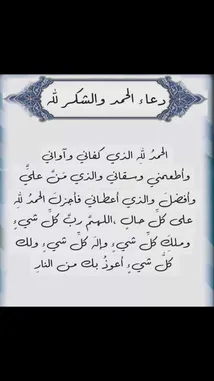 دعاء الحمد والشكر لله
الحمدُ للهِ الذي كفاني وآواني
وأطعمني وسقاني والذي مَنَّ عليَّ
وأفضلَ والذي أعطاني فأجزلَ الحمدُ للهِ
على كلِّ حالٍ ،اللهمَّ ربَّ كلِّ شيءٍ
وملِكَ كلِّ شيءٍ وإلهَ كلِّ شيءٍ ولك
كلُّ شيءٍ أعوذُ بك من النارِ